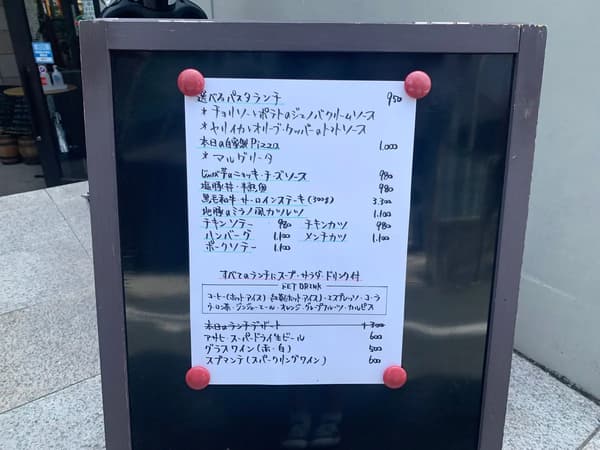 選べるパスタランチ 950
* チョリソーとポテトのジェノバクリームソース
* ヤリイカとオリーブ・ケッパーのトマトソース
本日の自家製Pizza 1.000
* マルゲリータ
じゃが芋のニョッキ・チーズソース 980
塩豚丼・半熟卵 980
黒毛和牛サーロインステーキ(300g) 3.300
地豚のミラノ風カツレツ 1.100
チキンソテー 980 チキンカツ 980
ハンバーグ 1.100 メンチカツ 1.100
ポークソテー 1.100
すべてのランチにスープ・サラダ・ドリンク付
SET DRINK
コーヒー(ホット アイス)・紅茶(ホット アイス)・エスプレッソ・コーラ
ウーロン茶・ジンジャーエール・オレンジ・グレープフルーツ・カルピス
本日のランチデザート +300
アサヒ・スーパードライ生ビール 600
グラスワイン(赤・白) 500
スプマンテ(スパークリングワイン) 600